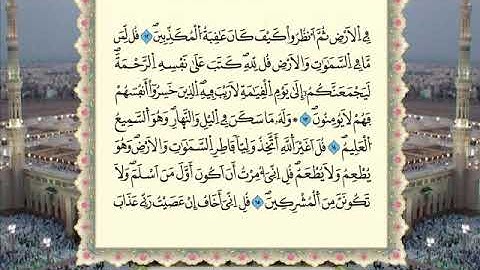 فِي اِلَارْضِ ثُمَّ اَنظُرُواْ كَيْفَ كَانَ عَٰقِبَةُ اُلْمُكَذِّبِينَۖ ١٢ قُل لِّمَن
مَّا فِي اِلسَّمَٰوَٰتِ وَالَارْضِ قُل لِّلهِۖ كَتَبَ عَلَىٰ نَفْسِهِ اِلرَّحْمَةَۖ
لَيَجْمَعَنَّكُمُۥٓ إِلَىٰ يَوْمِ اِلْقِيَٰمَةِ لَا رَيْبَ فِيهِۖ اِلذِينَ خَسِرُوٓاْ أَنفُسَهُمْ
فَهُمْ لَا يُومِنُونَۖ ١٣ وَلَهُۥ مَا سَكَنَ فِي اِليْلِ وَالنَّهَارِۖ وَهُوَ اَلسَّمِيعُ
اُلْعَلِيمُۖ ١٤ قُلَ اَغَيْرَ اَللَّهِ أَتَّخِذُ وَلِيّاً فَاطِرِ اِلسَّمَٰوَٰتِ وَالَارْضِۖ وَهُوَ
يُطْعِمُ وَلَا يُطْعَمُۖ قُلِ اِنِّيَ أُمِرْتُ أَنَ اَكُونَ أَوَّلَ مَنَ اَسْلَمَۖ وَلَا
تَكُونَنَّ مِنَ اَلْمُشْرِكِينَۖ ١٥ قُلِ اِنِّيَ أَخَافُ إِنْ عَصَيْتُ رَبِّي عَذَابَ